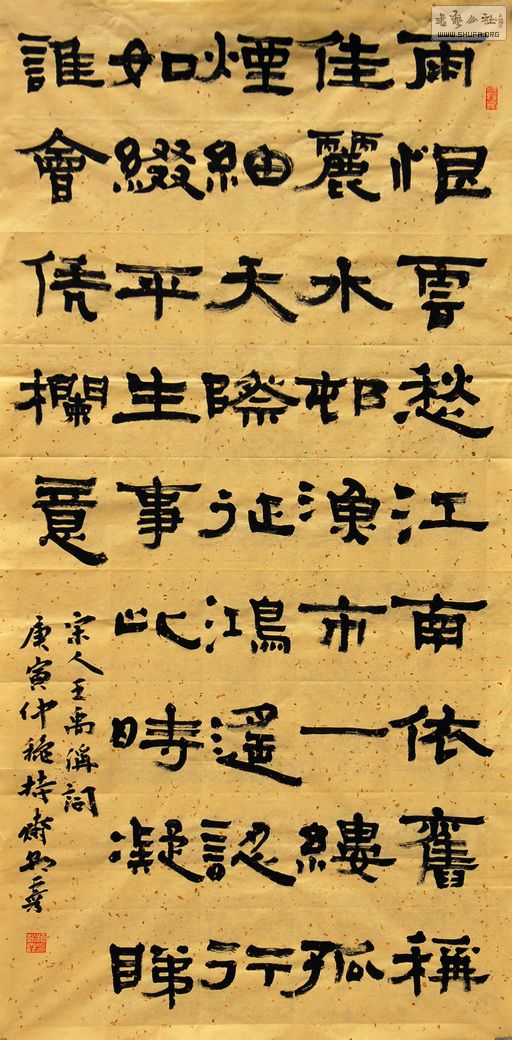 書藝公社
WWW.SHUFA.ORG
雨恨雲愁江南依舊稱
佳麗水邨漁市一縷孤
煙細天際征鴻遙認行
如綴平生事此時凝睇
誰會凭欄意
宋人王禹偁詞
庚寅仲穐持齋